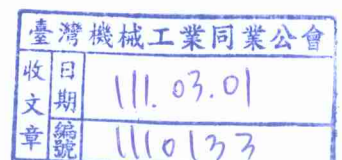 臺灣機械工業同業公會
收文章
日期 111.03.01
編號 1110133